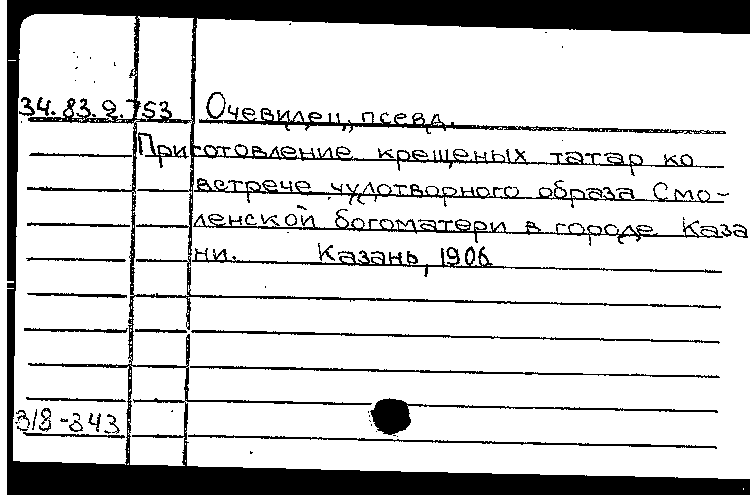 34.83.9.753 Очевидец, псевд.
Приготовление крещеных татар ко
встрече чудотворного образа Смо-
ленской богоматери в городе Каза
ни. Казань, 1906
318-343